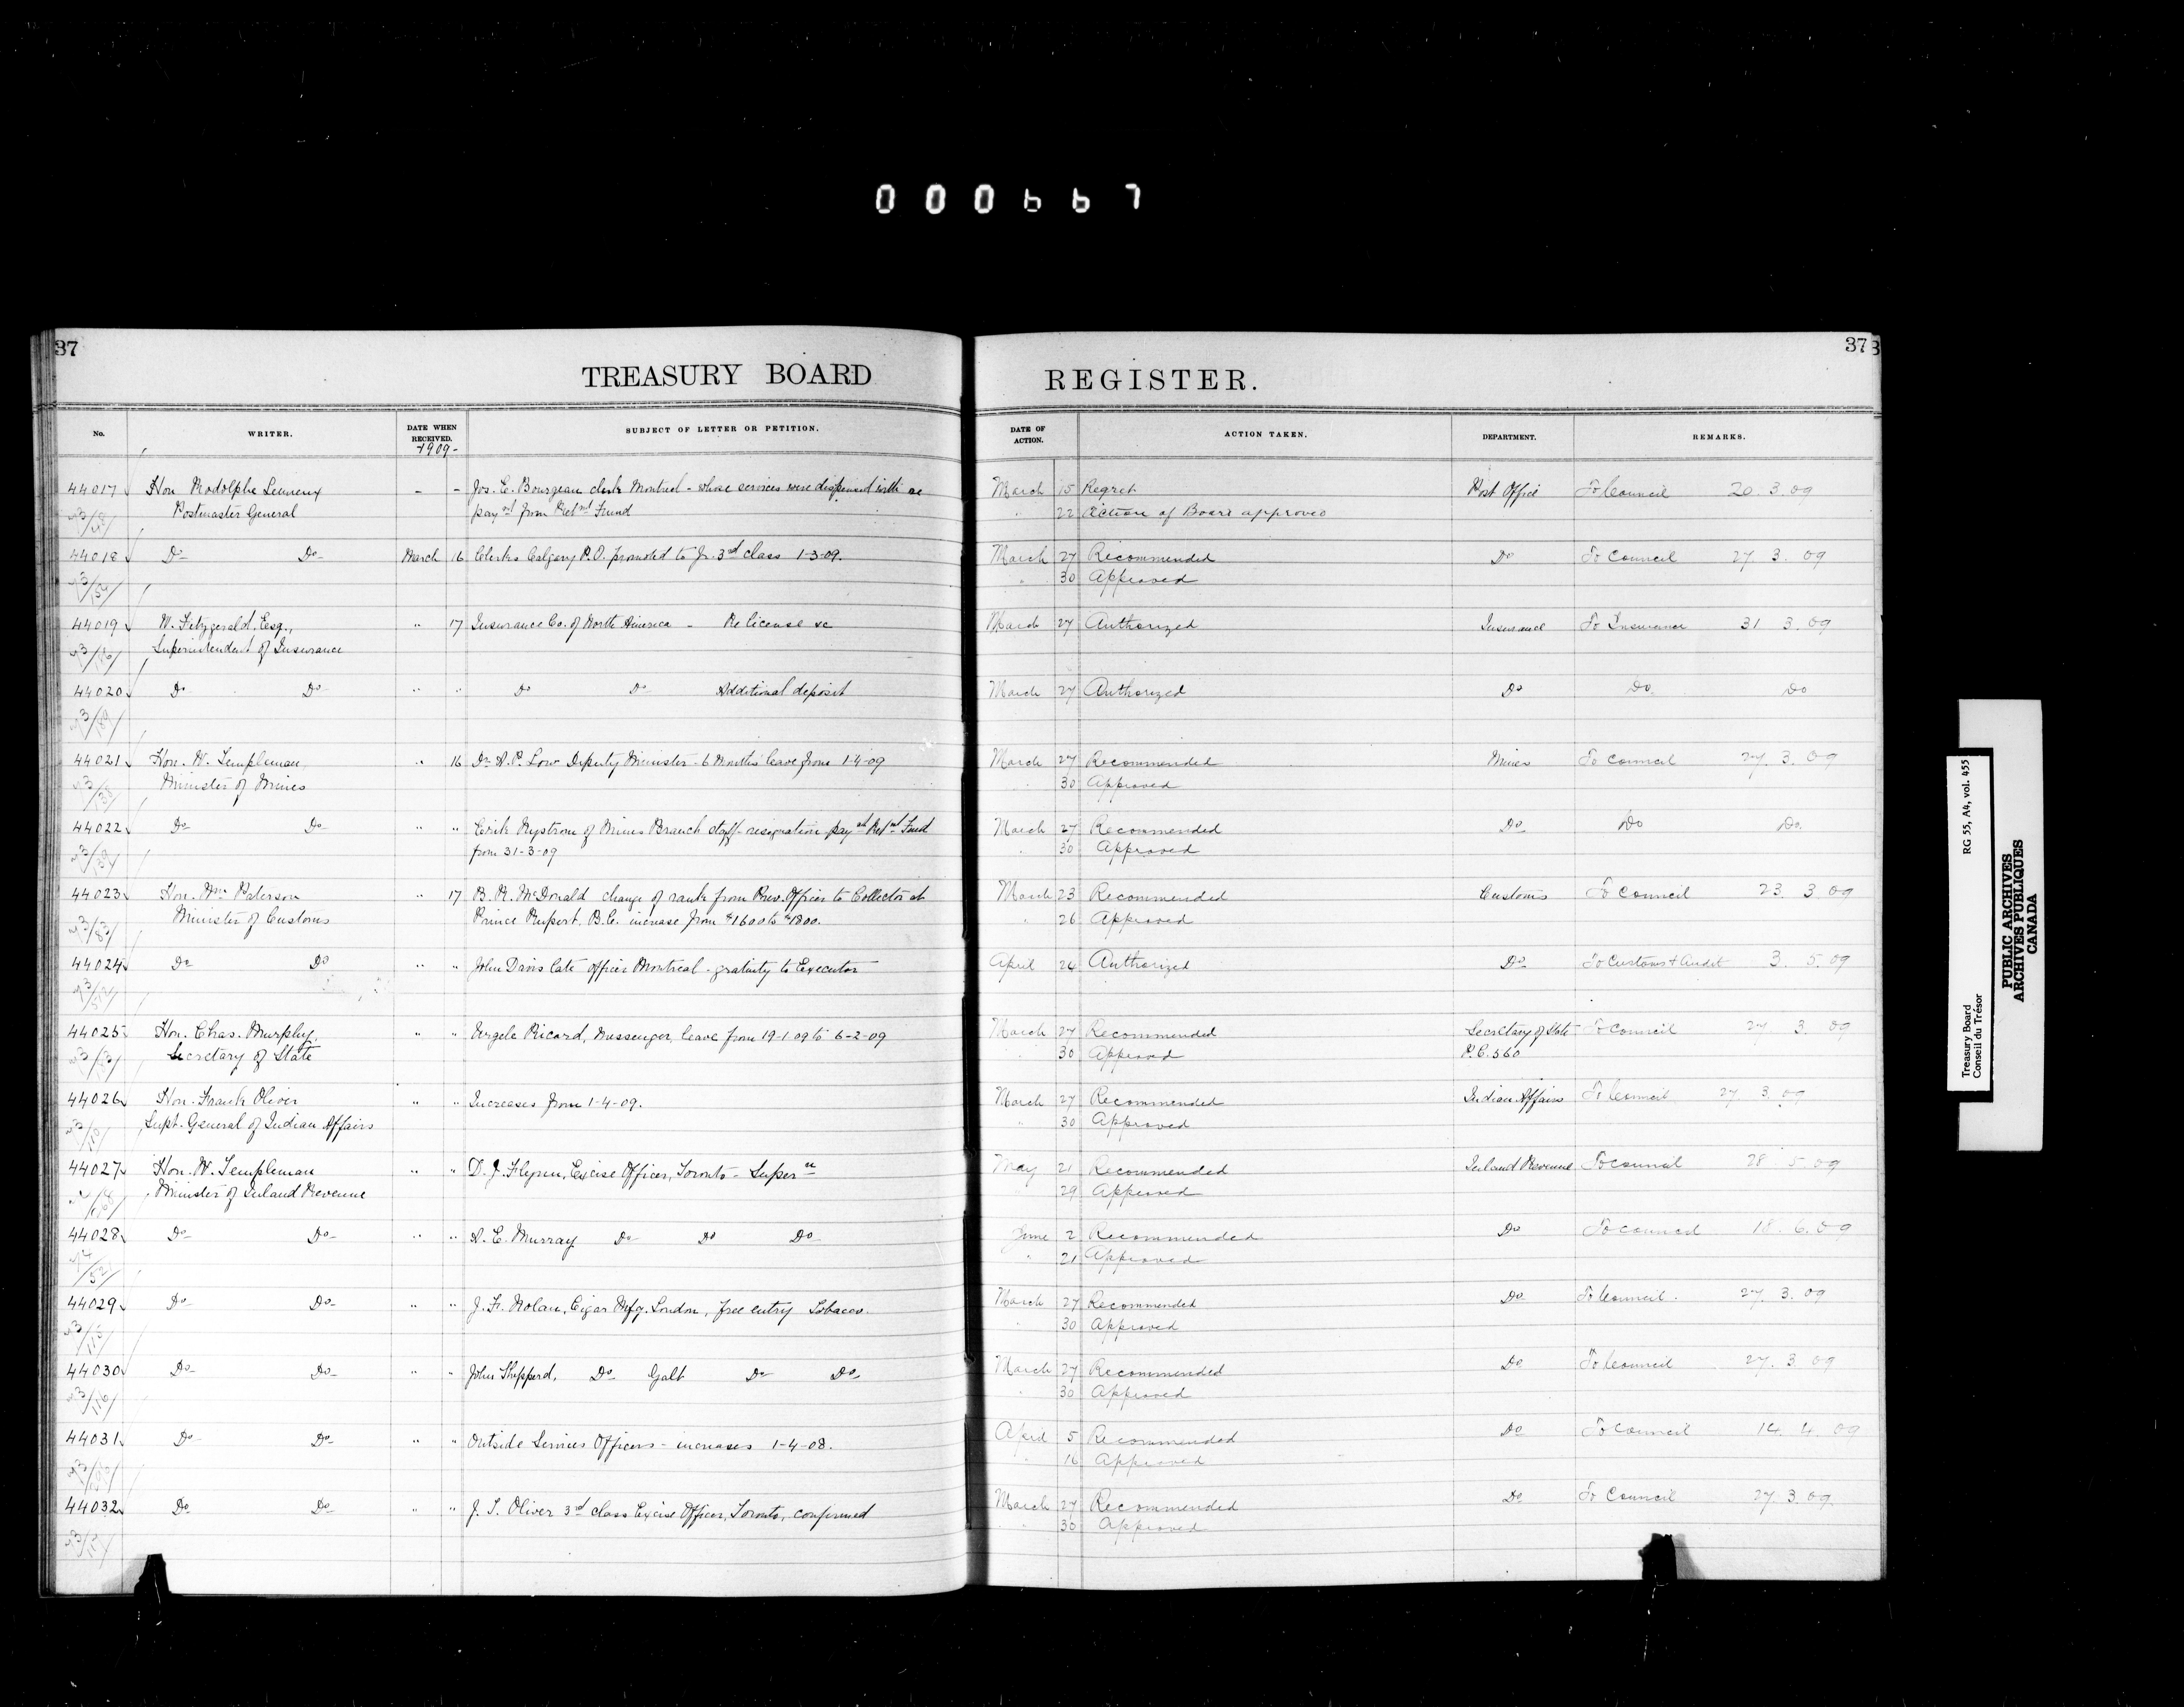 000667
37
37
TREASURY BOARD REGISTER.
No. WRITER. DATE WHEN RECEIVED. SUBJECT OF LETTER OR PETITION. DATE OF ACTION. ACTION TAKEN. DEPARTMENT. REMARKS.
1909-
44017 Hon Rodolphe Lemieux - - Jos. E. Bourgeau clerk Montreal - whose services were dispensed with re March 15 Regret Post Office To Council 20.3.09
Postmaster General pay^mt from Ret^mt Fund " 22 Action of Board approved
44018 Do Do March 16 Clerks Calgary P.O. promoted to Jr. 3rd class 1-3-09. March 27 Recommended Do To Council 27.3.09
" 30 Approved
44019 W. Fitzgerald, Esq., " 17 Insurance Co. of North America - Re license &c March 27 Authorized Insurance To Insurance 31 3.09
Superintendent of Insurance
44020 Do Do " " Do Do Additional deposit March 27 Authorized Do Do Do
44021 Hon. W. Templeman, " 16 Dr A.P. Low Deputy Minister - 6 Months' leave from 1-4-09 March 27 Recommended Mines To Council 27.3.09
Minister of Mines " 30 Approved
44022 Do Do " " Erik Nystrom of Mines Branch staff - resignation pay^mt Ret^mt Fund March 27 Recommended Do Do Do
from 31-3-09 " 30 Approved
44023 Hon. Wm Paterson " 17 B. R. McDonald change of rank from Prev. Officer to Collector at March 23 Recommended Customs To Council 23.3.09
Minister of Customs Prince Rupert, B.C. increase from $1600 to $1800. " 26 Approved
44024 Do Do " " John Davis late officer Montreal - gratuity to Executor April 24 Authorized Do To Customs & Audit 3.5.09
44025 Hon. Chas. Murphy, " " Urgele Ricard, Messenger, leave from 19-1-09 to 6-2-09 March 27 Recommended Secretary of State To Council 27 3. 09
Secretary of State " 30 Approved P.C. 560
44026 Hon. Frank Oliver " " Increases from 1-4-09. March 27 Recommended Indian Affairs To Council 27 3.09
Supt. General of Indian Affairs " 30 Approved
44027 Hon. W. Templeman " " D. J. Flynn, Excise Officer, Toronto - Super^n May 21 Recommended Inland Revenue To Council 28 5.09
Minister of Inland Revenue 29 Approved
44028 Do Do " " A. E. Murray Do Do Do June 2 Recommended Do To Council 18.6.09
" 21 Approved
44029 Do Do " " J. F. Nolan, Cigar Mfg. London, free entry Tobacco. March 27 Recommended Do To Council. 27.3.09
" 30 Approved
44030 Do Do " " John Shepperd, Do Galt Do Do March 27 Recommended Do To Council 27.3.09
" 30 Approved
44031 Do Do " " Outside Service Officers - increases 1-4-08. April 5 Recommended Do To Council 14.4.09
" 16 Approved
44032 Do Do " " J. T. Oliver 3rd class Excise Officer, Toronto, confirmed March 27 Recommended Do To Council 27.3.09
30 Approved
Treasury Board RG 55, A4, vol. 455
Conseil du Trésor
PUBLIC ARCHIVES
ARCHIVES PUBLIQUES
CANADA